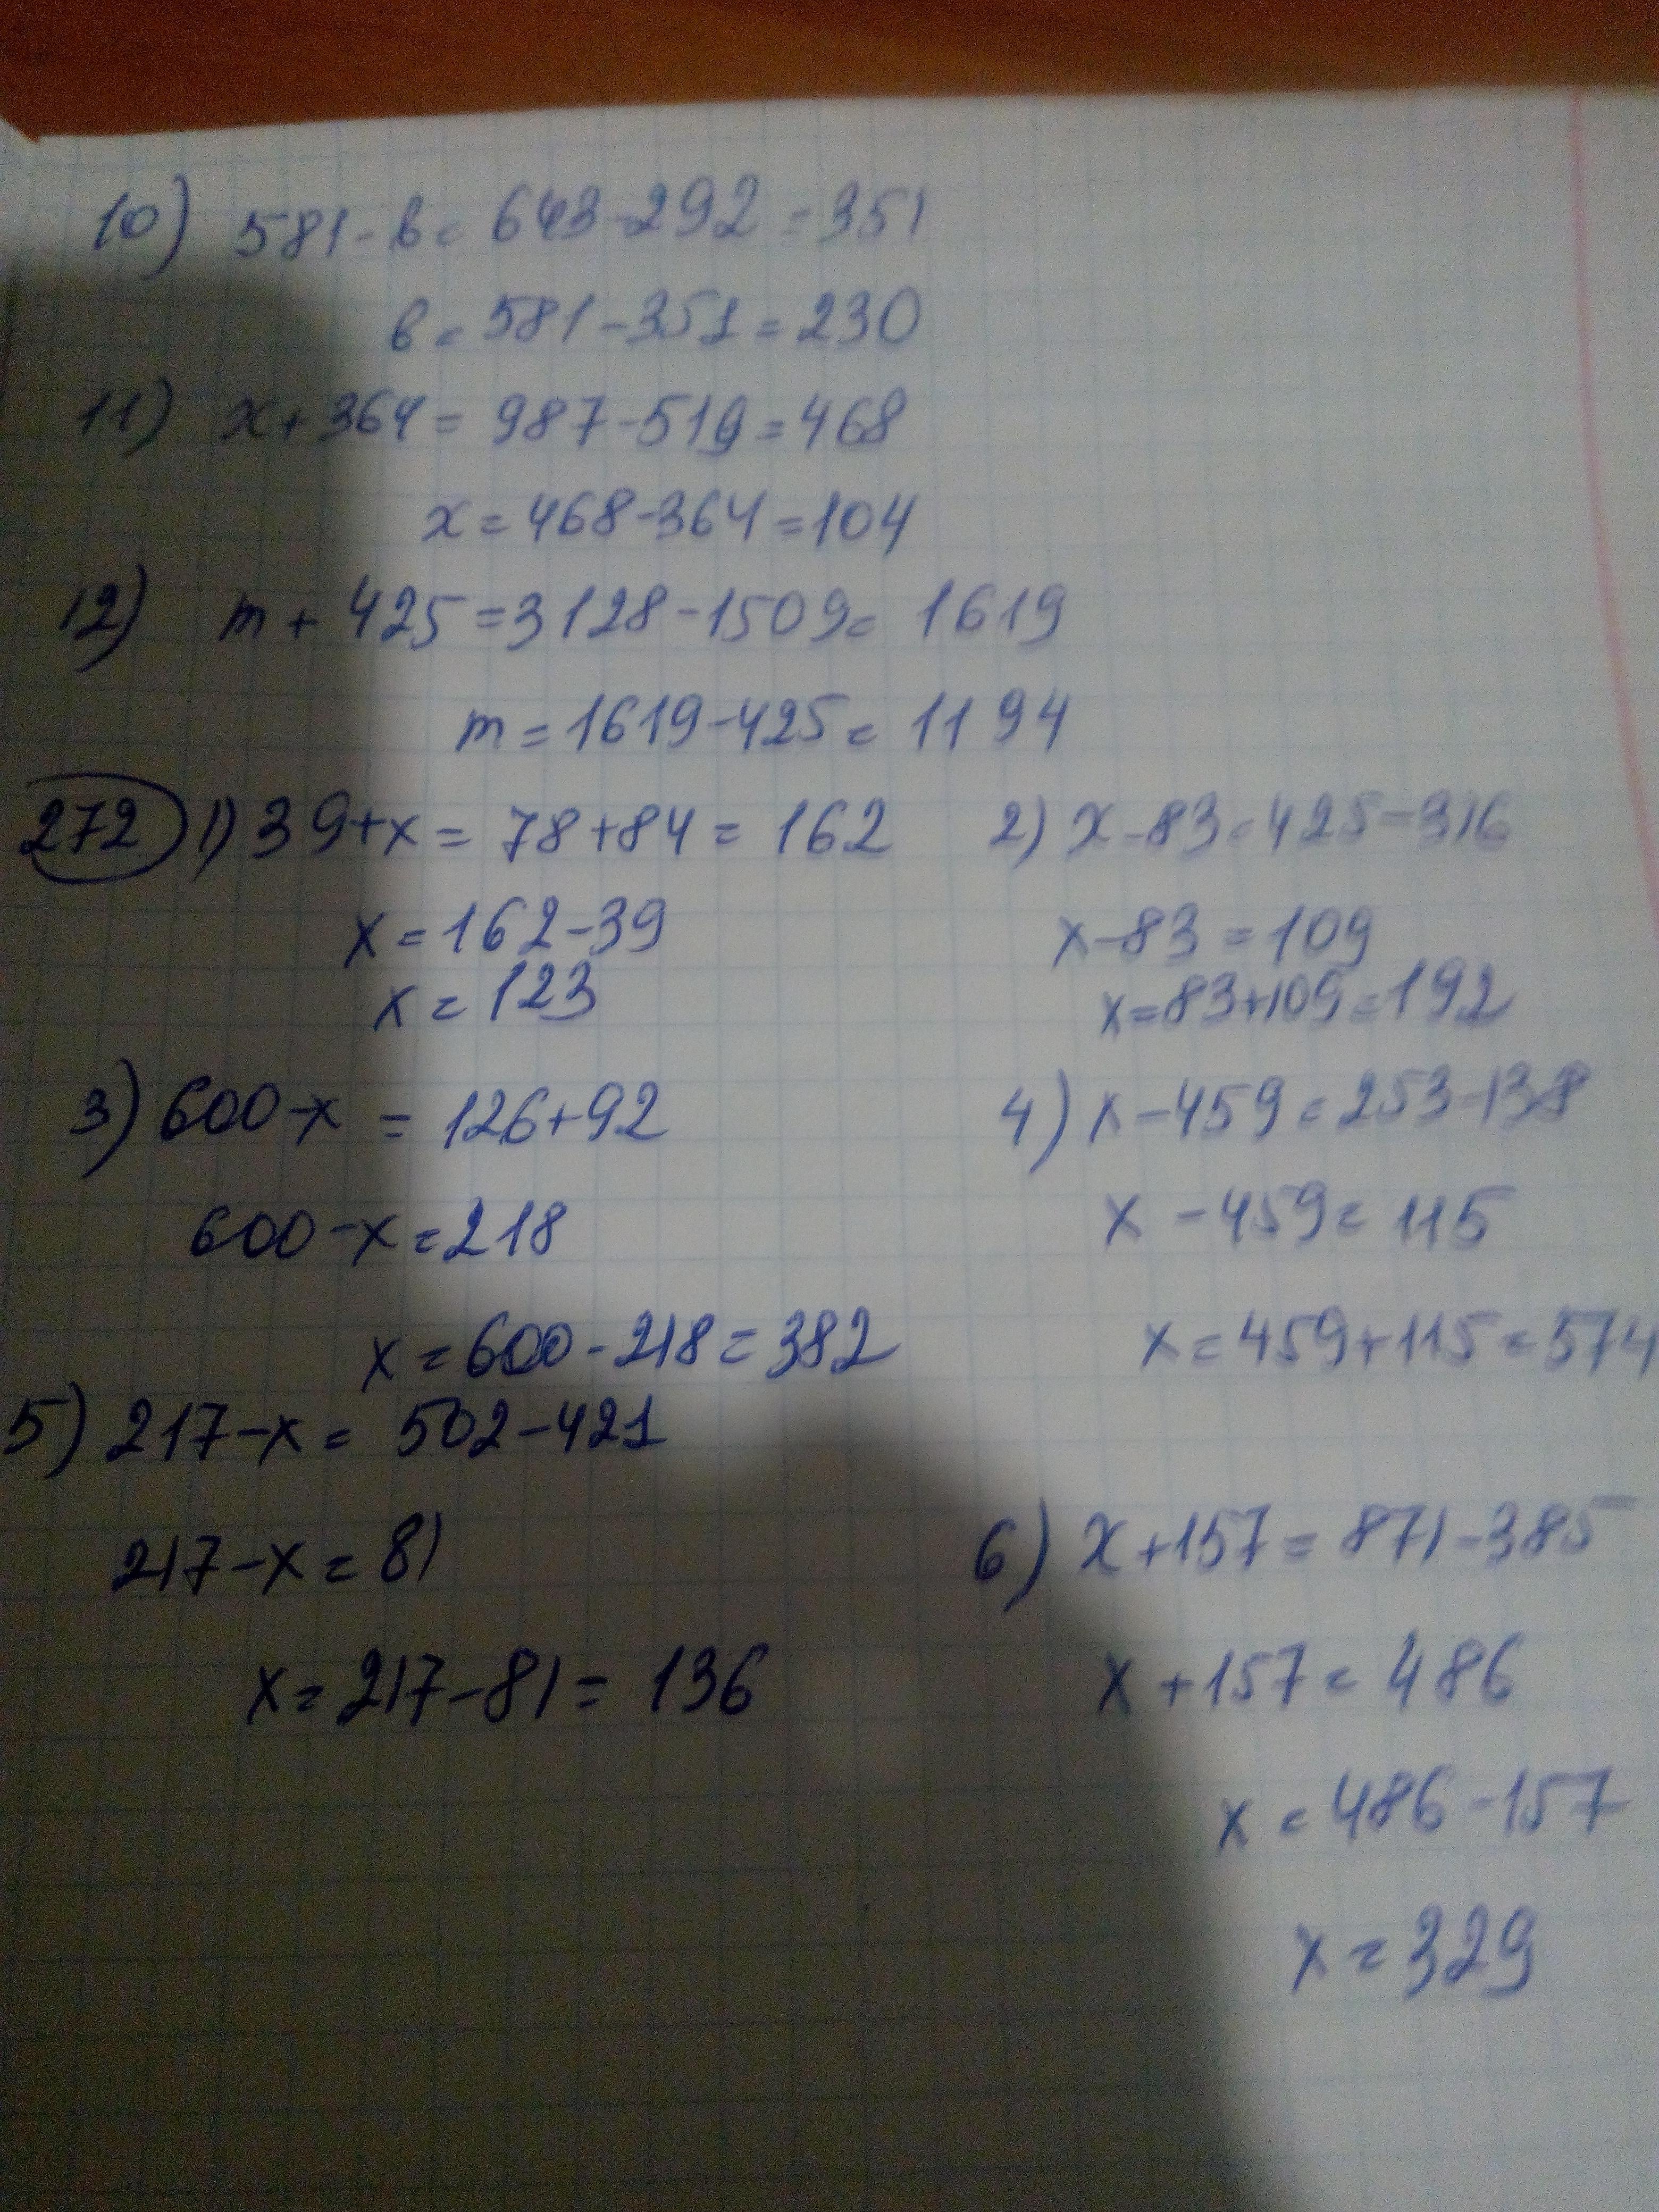 10) 581-в=643-292=351
в=581-351=230
11) x+364=987-519=468
x=468-364=104
12) m+425=3128-1509=1619
m=1619-425=1194
272 1) 39+x=78+84=162
x=162-39
x=123
2) x-83=425-316
x-83=109
x=83+109=192
3) 600-x=126+92
600-x=218
x=600-218=382
4) x-459=253-138
x-459=115
x=459+115=574
5) 217-x=502-421
217-x=81
x=217-81=136
6) x+157=871-385
x+157=486
x=486-157
x=329